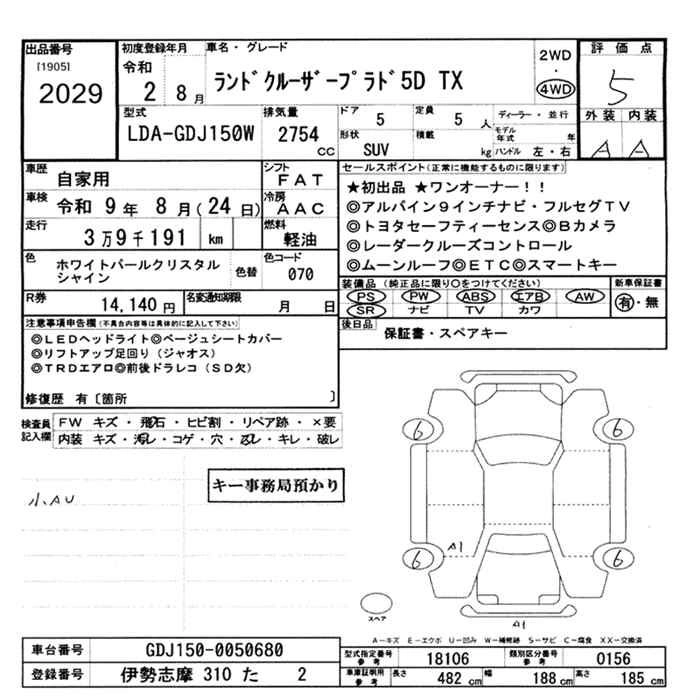 出品番号
[1905]
2029
初度登録年月
令和
2 8月
車名・グレード
ランドクルーザープラド5D TX
2WD
・
4WD
評価点
5
外装 内装
A A
型式
LDA-GDJ150W
排気量
2754
cc
ドア
5
定員
5 人
形状
SUV
積載
kg
ディーラー・並行
モデル年式 年
ハンドル 左・右
車歴
自家用
シフト
FAT
車検
令和 9年 8月(24日)
冷房
AAC
走行
3万9千191 km
燃料
軽油
色
ホワイトパールクリスタル
シャイン
色替
色コード
070
R券
14,140円
名変通知期限
月 日
セールスポイント(正常に機能するものに限ります)
★初出品 ★ワンオーナー!!
◎アルパイン9インチナビ・フルセグTV
◎トヨタセーフティーセンス◎Bカメラ
◎レーダークルーズコントロール
◎ムーンルーフ◎ETC◎スマートキー
装備品(純正品に限り○をつけてください)
PS PW ABS エアB AW
SR ナビ TV カワ
新車保証書
有・無
後日品
保証書・スペアキー
注意事項申告欄(不具合内容等は具体的に記入して下さい)
◎LEDヘッドライト◎ベージュシートカバー
◎リフトアップ足回り(ジャオス)
◎TRDエアロ◎前後ドラレコ(SD欠)
修復歴 有〔箇所 〕
検査員
記入欄
FW キズ・飛石・ヒビ割・リペア跡・×要
内装 キズ・汚レ・コゲ・穴・凹レ・キレ・破レ
キー事務局預かり
小、AU
6 6
A1
6 6
スペア
A1
A-キズ E-エクボ U-凹み W-補修跡 S-サビ C-腐食 XX-交換済
車台番号
GDJ150-0050680
登録番号
伊勢志摩 310 た 2
型式指定番号
参考
18106
類別区分番号
参考
0156
車庫証明用
参考
長さ
482 cm
幅
188 cm
高さ
185 cm